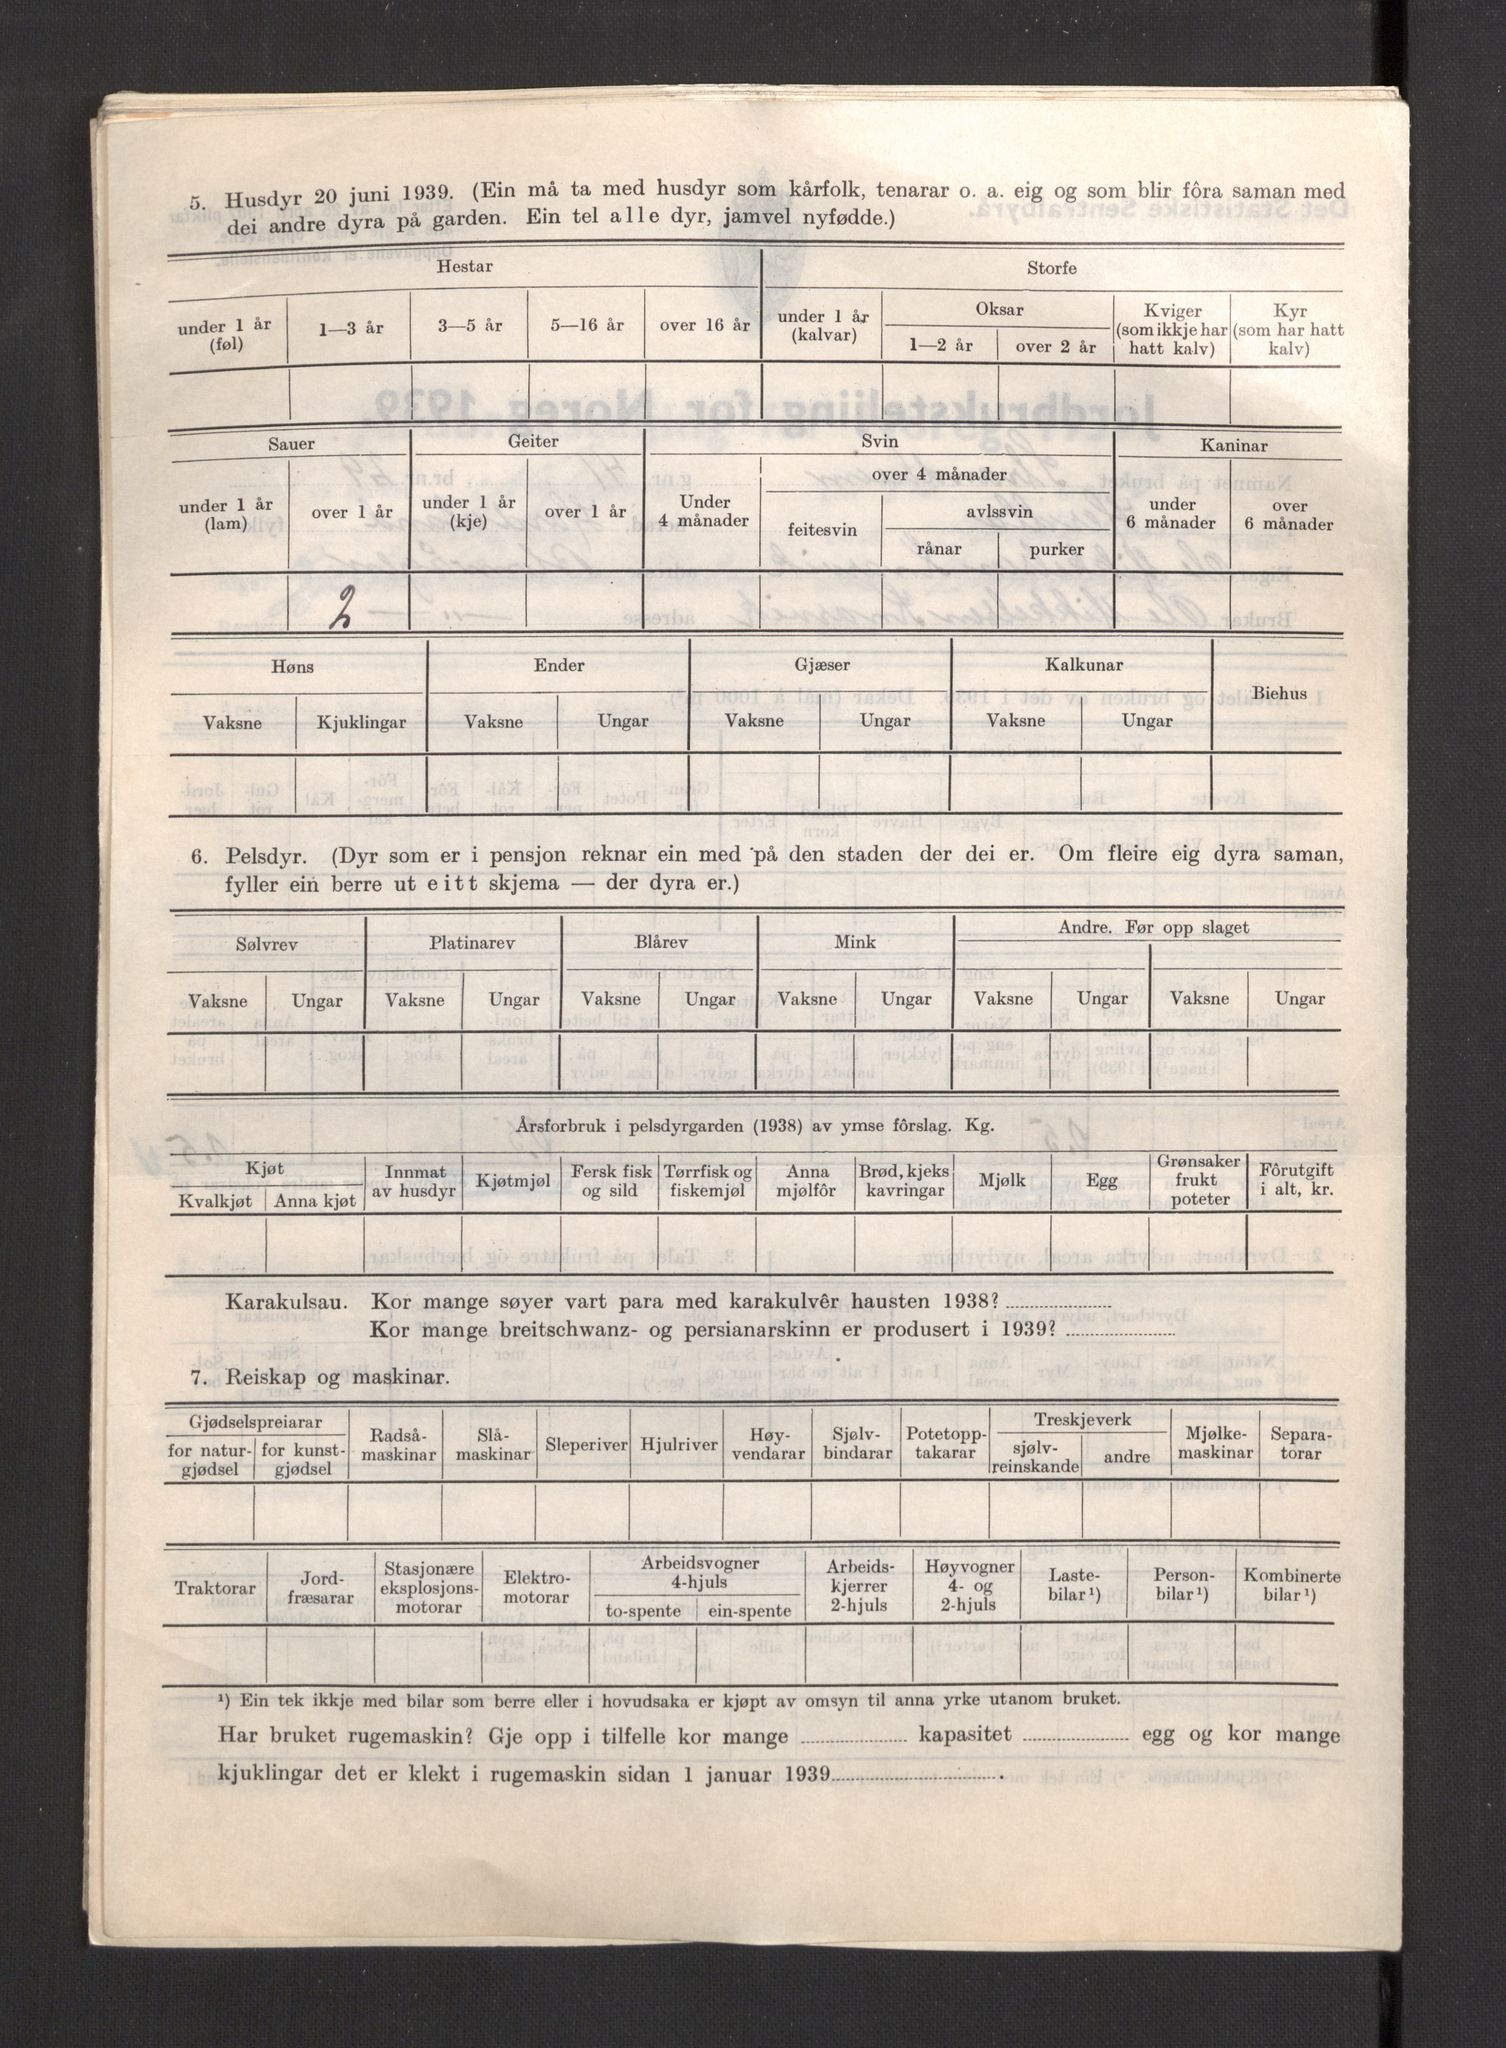 5. Husdyr 20 juni 1939. (Ein må ta med husdyr som kårfolk, tenarar o. a. eig og som blir fôra saman med
dei andre dyra på garden. Ein tel alle dyr, jamvel nyfødde.)
Hestar Storfe
under 1 år (føl) 1—3 år 3—5 år 5—16 år over 16 år under 1 år (kalvar) Oksar 1—2 år over 2 år Kviger (som ikkje har hatt kalv) Kyr (som har hatt kalv)
Sauer Geiter Svin Kaninar
under 1 år (lam) over 1 år under 1 år (kje) over 1 år Under 4 månader over 4 månader feitesvin avlssvin rånar purker under 6 månader over 6 månader
2
Høns Ender Gjæser Kalkunar Biehus
Vaksne Kjuklingar Vaksne Ungar Vaksne Ungar Vaksne Ungar
6. Pelsdyr. (Dyr som er i pensjon reknar ein med på den staden der dei er. Om fleire eig dyra saman,
fyller ein berre ut eitt skjema — der dyra er.)
Sølvrev Platinarev Blårev Mink Andre. Før opp slaget
Vaksne Ungar Vaksne Ungar Vaksne Ungar Vaksne Ungar Vaksne Ungar Vaksne Ungar
Årsforbruk i pelsdyrgarden (1938) av ymse fôrslag. Kg.
Kjøt Kvalkjøt Anna kjøt Innmat av husdyr Kjøtmjøl Fersk fisk og sild Tørrfisk og fiskemjøl Anna mjølfôr Brød, kjeks kavringar Mjølk Egg Grønsaker frukt poteter Fôrutgift i alt, kr.
Karakulsau. Kor mange søyer vart para med karakulvêr hausten 1938?
Kor mange breitschwanz- og persianarskinn er produsert i 1939?
7. Reiskap og maskinar.
Gjødselspreiarar for natur-gjødsel for kunst-gjødsel Radså-maskinar Slå-maskinar Sleperiver Hjulriver Høy-vendarar Sjølv-bindarar Potetopp-takarar Treskjeverk sjølv-reinskande andre Mjølke-maskinar Separa-torar
Traktorar Jord-fræsarar Stasjonære eksplosjons-motorar Elektro-motorar Arbeidsvogner 4-hjuls to-spente ein-spente Arbeids-kjerrer 2-hjuls Høyvogner 4- og 2-hjuls Laste-bilar ¹) Person-bilar ¹) Kombinerte bilar ¹)
¹) Ein tek ikkje med bilar som berre eller i hovudsaka er kjøpt av omsyn til anna yrke utanom bruket.
Har bruket rugemaskin? Gje opp i tilfelle kor mange kapasitet egg og kor mange
kjuklingar det er klekt i rugemaskin sidan 1 januar 1939 .